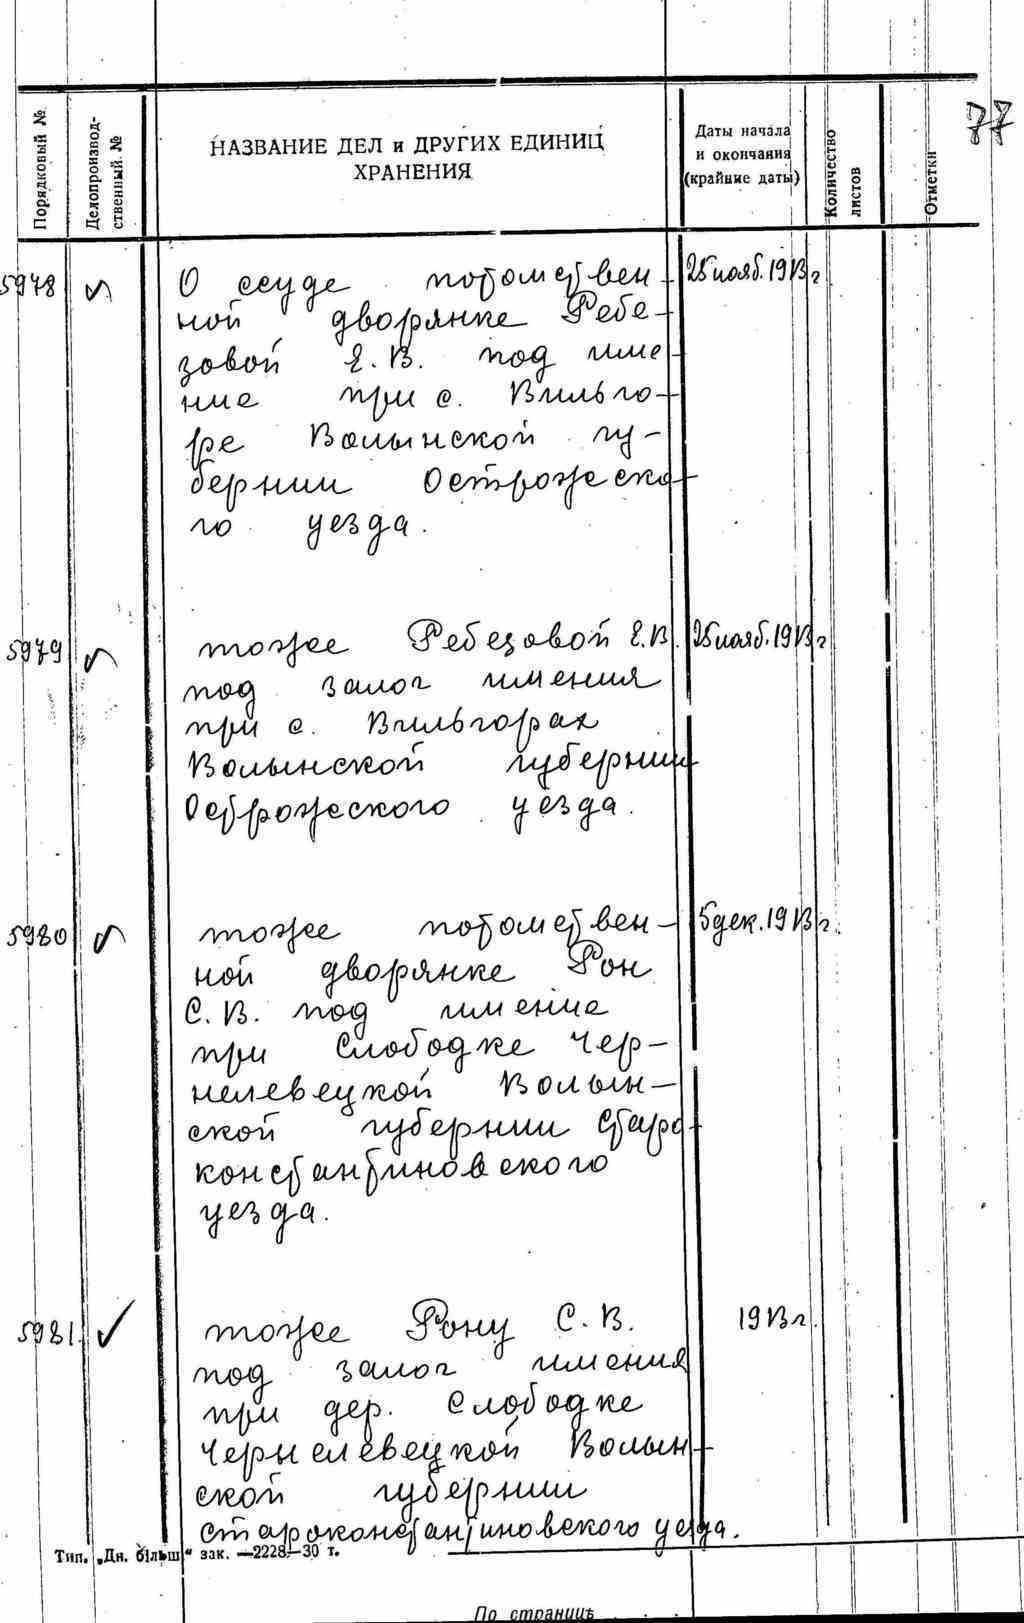 77
Порядковый №
Делопроизвод-
ственный №
НАЗВАНИЕ ДЕЛ и ДРУГИХ ЕДИНИЦ
ХРАНЕНИЯ
Даты начала
и окончания
(крайние даты)
Количество
листов
Отметки
5978
О ссуде потомствен-
ной дворянке Ребе-
зовой Е. В. под име-
ние при с. Вильго-
ре Волынской гу-
бернии Острожско-
го уезда.
25 нояб. 1913 г
5979
тоже Ребезовой Е. В.
под залог имения
при с. Вильгорах
Волынской губернии
Острожеского уезда.
25 нояб. 1913 г
5980
тоже потомствен-
ной дворянке Рон
С. В. под имение
при Слободке Чер-
нелевецкой Волын-
ской губернии Старо-
константиновского
уезда.
5 дек. 1913 г.
5981
тоже Рону С. В.
под залог имения
при дер. Слободке
Чернелевецкой Волын-
ской губернии
староконстантиновского уезда.
1913 г.
Тип. „Дн. більш“ зак. —2228—30 т.
По странице